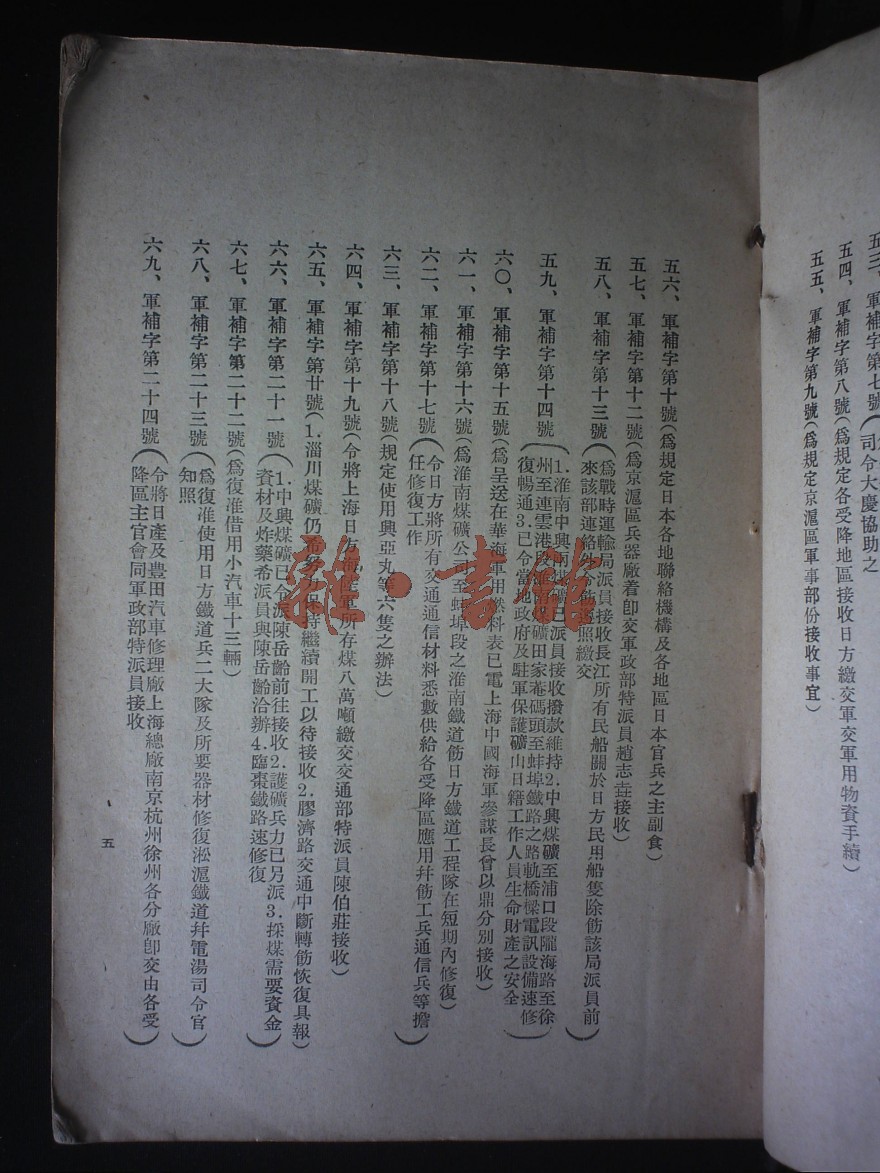 司令大慶協助之
五四、軍補字第八號(爲規定各受降地區接收日方繳交軍交軍用物資手續)
五五、軍補字第九號(爲規定京滬區軍事部份接收事宜)
五六、軍補字第十號(爲規定日本各地聯絡機構及各地區日本官兵之主副食)
五七、軍補字第十二號(爲京滬區兵器廠着卽交軍政部特派員趙志垚接收)
五八、軍補字第十三號(爲戰時運輸局派員接收長江所有民船關於日方民用船隻除飭該局派員前
來該部連絡外飭遵照繳交)
五九、軍補字第十四號(1.淮南中興兩煤礦已派員接收撥款維持2.中興煤礦至浦口段隴海路至徐
州至連雲港段淮南礦田家菴碼頭至蚌埠鐵路之路軌橋樑電訊設備速修
復暢通3.已令當地政府及駐軍保護礦山日籍工作人員生命財產之安全)
六〇、軍補字第十五號(爲呈送在華海軍用燃料表已電上海中國海軍參謀長曾以鼎分別接收)
六一、軍補字第十六號(爲淮南煤礦公司至蚌埠段之淮南鐵道飭日方鐵道工程隊在短期內修復)
六二、軍補字第十七號(令日方將所有交通通信材料悉數供給各受降區應用幷飭工兵通信兵等擔
任修復工作)
六三、軍補字第十八號(規定使用興亞丸等六隻之辦法)
六四、軍補字第十九號(令將上海日方海陸軍所存煤八萬噸繳交交通部特派員陳伯莊接收)
六五、軍補字第廿號(1.淄川煤礦仍希努力保持繼續開工以待接收2.膠濟路交通中斷轉飭恢復具報)
六六、軍補字第二十一號(1.中興煤礦已令派陳岳齡前往接收2.護礦兵力已另派3.採煤需要資金
資材及炸藥希派員與陳岳齡洽辦4.臨棗鐵路速修復)
六七、軍補字第二十二號(爲復准借用小汽車十三輛)
六八、軍補字第二十三號(爲復准使用日方鐵道兵二大隊及所要器材修復淞滬鐵道幷電湯司令官
知照)
六九、軍補字第二十四號(令將日產及豐田汽車修理廠上海總廠南京杭州徐州各分廠卽交由各受
降區主官會同軍政部特派員接收)
五
雜·書館